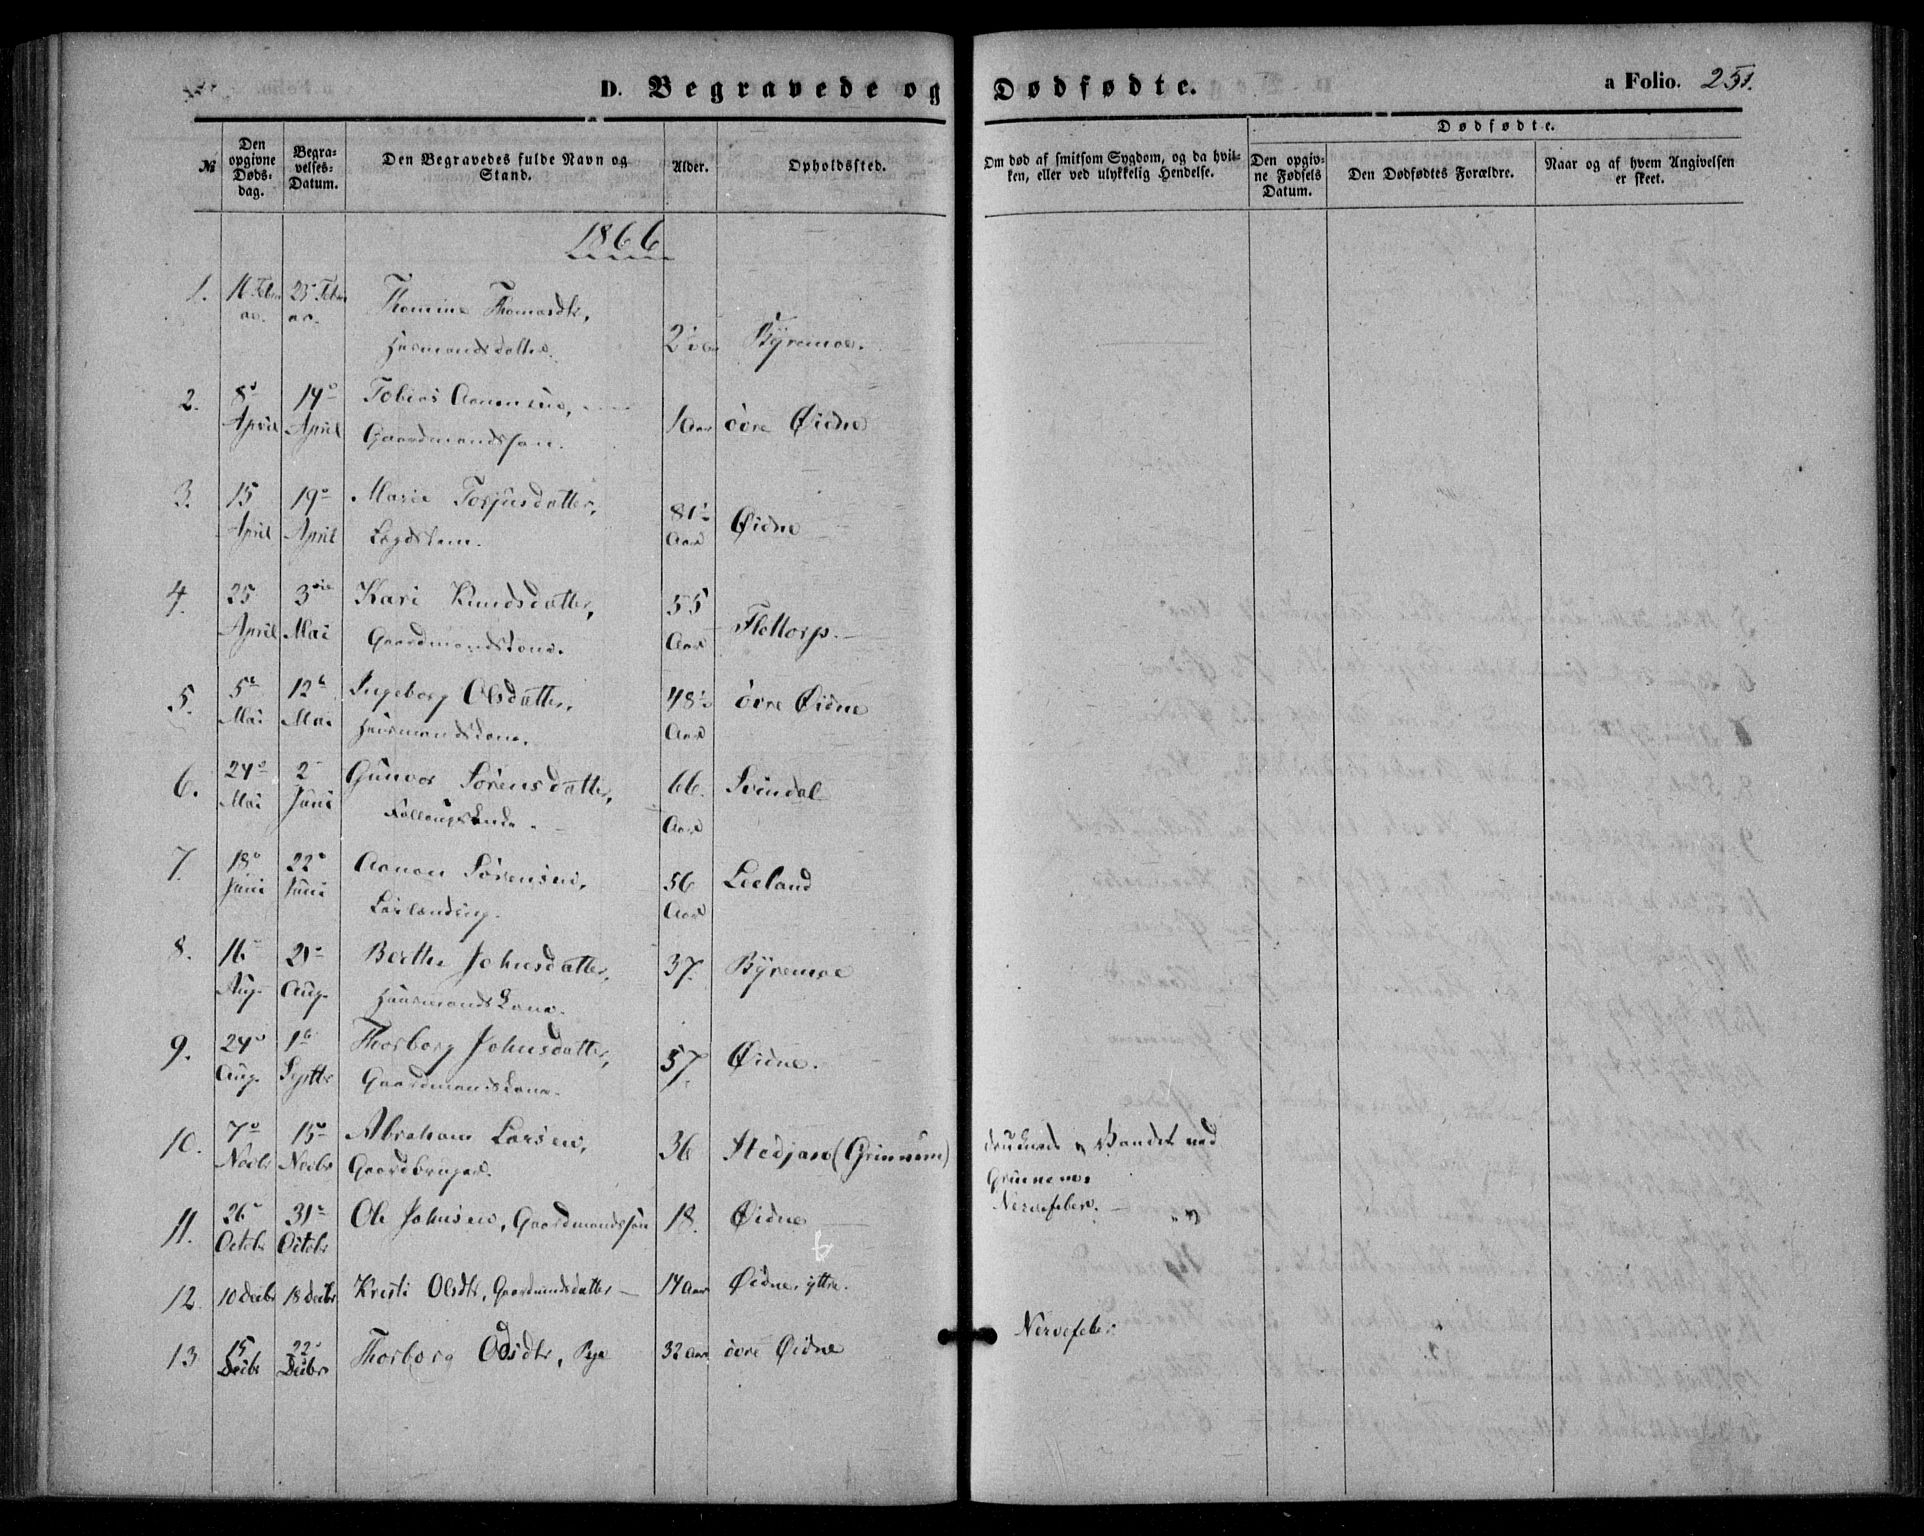 D. Begravede og Dødfødte.
a Folio. 251.
№
Den opgivne Døds-dag.
Begra-velses-Datum.
Den Begravedes fulde Navn og Stand.
Alder.
Opholdssted.
Om død af smitsom Sygdom, og da hvil-ken, eller ved ulykkelig Hendelse.
Dødfødte.
Den opgiv-ne Fødsels Datum.
Den Dødfødtes Forældre.
Naar og af hvem Angivelsen er skeet.
1866
1. 25 Thomine Thomasdtr, Byremoe.
2. 8 April 14 April Tobias Gaardmandssøn. 1 Aar øvre Øidne
3. 15 April 19 April Marie Torjusdatter, Lægdslem. 81½ Aar Øidne
4. 25 April 3 Mai Kari Knudsdatter, Gaardmandskone. 55 Aar Flottorp.
5. 5 Mai 12 Mai Ingeborg Olsdatter, Huusmandskone. 48½ Aar øvre Øidne
6. 24 Mai 2 Juni Gunvor Sørensdatter, 66. Aar Svindal
7. 18 Juni 22 Juni Aanon Sørensen, 56 Aar Leland
8. 16 Aug. 21 Aug. Berthe Johnsdatter, Huusmandskone. 37. Byremoe
9. 24 Aug. 1 Septbr Thorborg Johnsdatter, Gaardmandskone. 57. Øidne.
10. 7 15 Abraham Larsen, Gaardbruger. 36 Stedjan (Grinnum) druknede Vandet ved
11. 26 Octobr 31 Octobr Ole Johnsen, Gaardmandssøn 18. Øidne Nervefeber.
12. 10 Decbr 18 Decbr Kristi Olsdtr, Gaardmandsdatter 14 Aar Øidne, yttre.
13 15 Decbr 22 Decbr Thorborg Olsdtr, Pige 32 Aar øvre Øidne Nervefeber